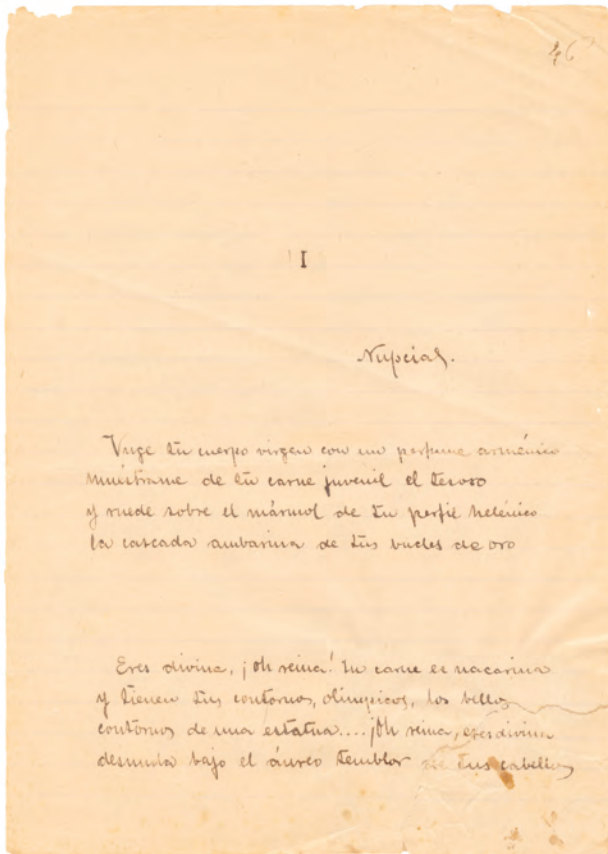 46
I
Nupcial.
Unge tu cuerpo virgen con un perfume arménico
muéstrame de tu carne juvenil el tesoro
y ruede sobre el mármol de tu perfil helénico
la cascada ambarina de tus bucles de oro
Eres divina, ¡oh reina! tu carne es nacarina
y tienen tus contornos, olímpicos, los bellos
contornos de una estatua.... ¡Oh reina, eres divina
desnuda bajo el áureo temblor de tus cabellos